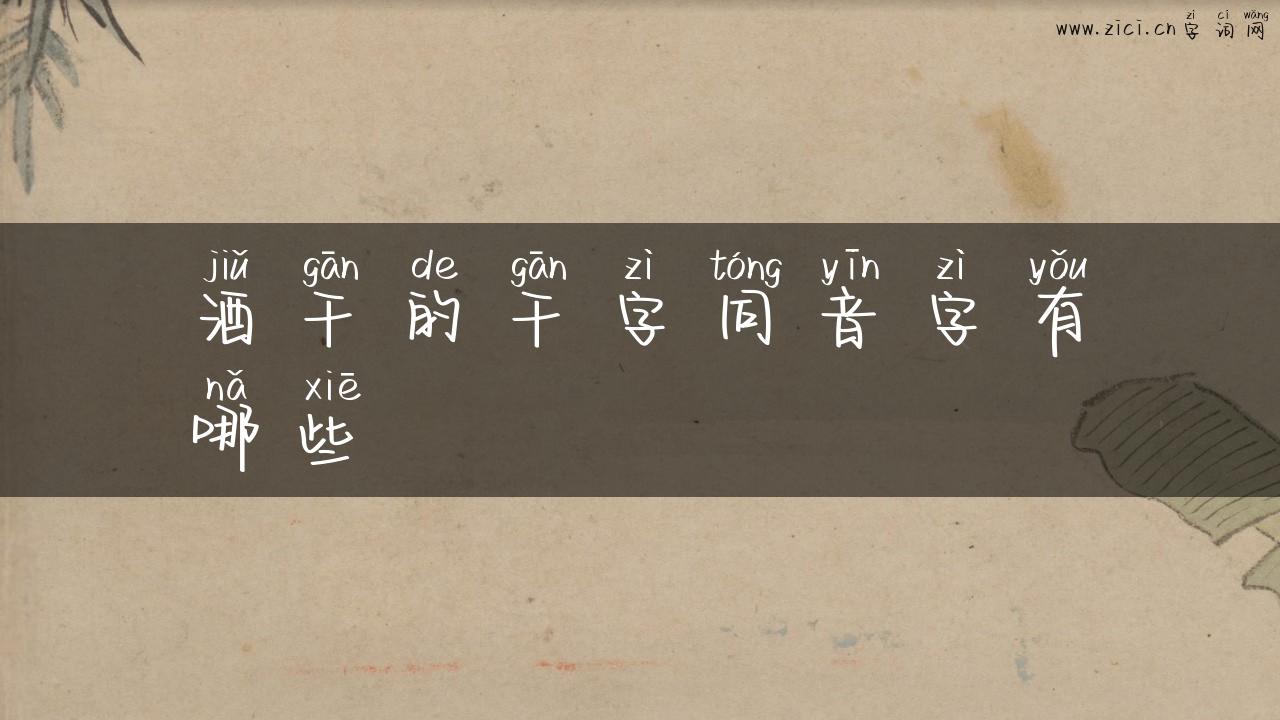 zì cí wǎng
www.zici.cn 字 词 网
jiǔ gān de gān zì tóng yīn zì yǒu
酒 干 的 干 字 同 音 字 有
nǎ xiē
哪 些